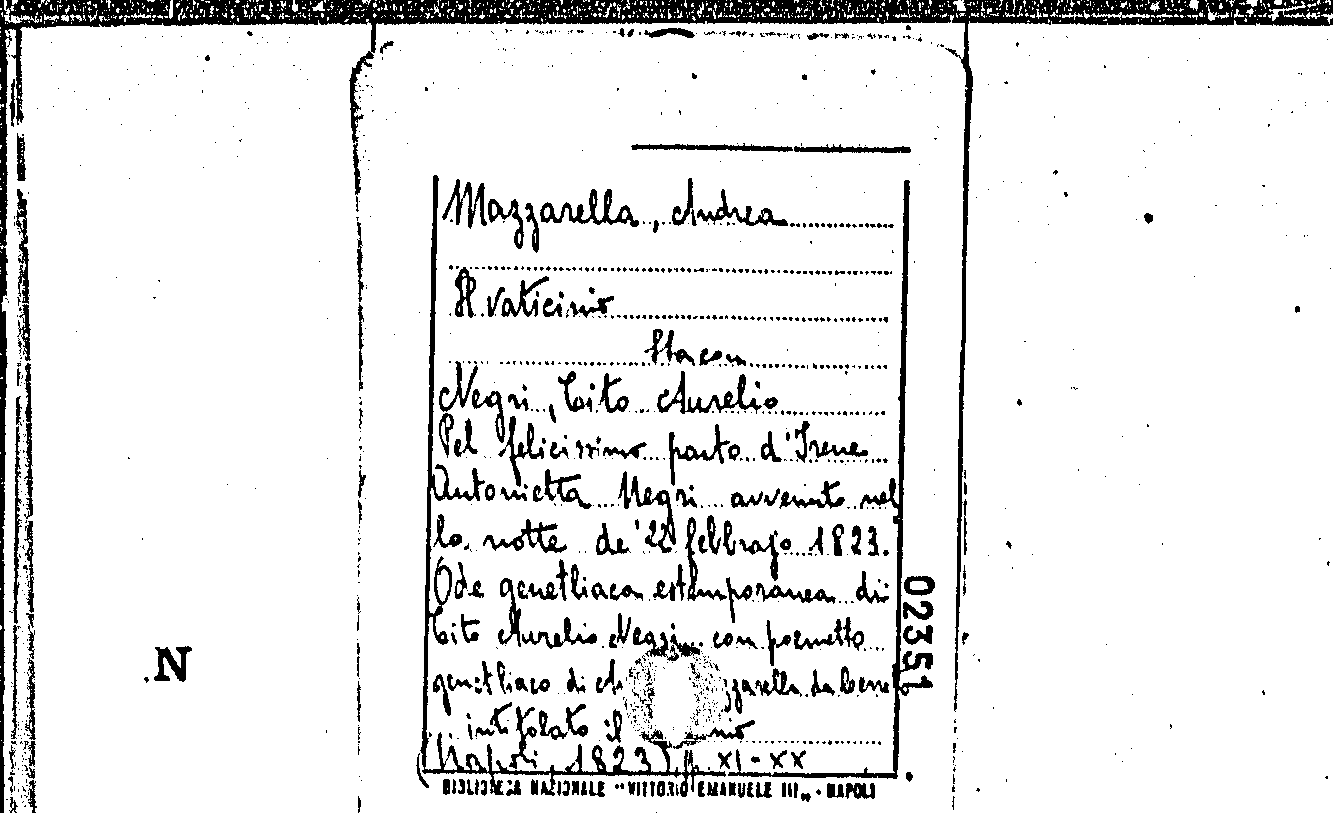 Mazzarella, Andrea
Il vaticinio
Sta con
Negri, Tito Aurelio
Pel felicissimo parto d'Irene
Antonietta Negri avvenuto nel
la notte de' 22 febbrajo 1823.
Ode genetliaca estemporanea di
Tito Aurelio Negri con poemetto
genetliaco di zzarella da Cerre
intitolato il nio
(Napoli, 1823) p. XI-XX
BIBLIOTECA NAZIONALE "VITTORIO EMANUELE III" - NAPOLI
02351
N